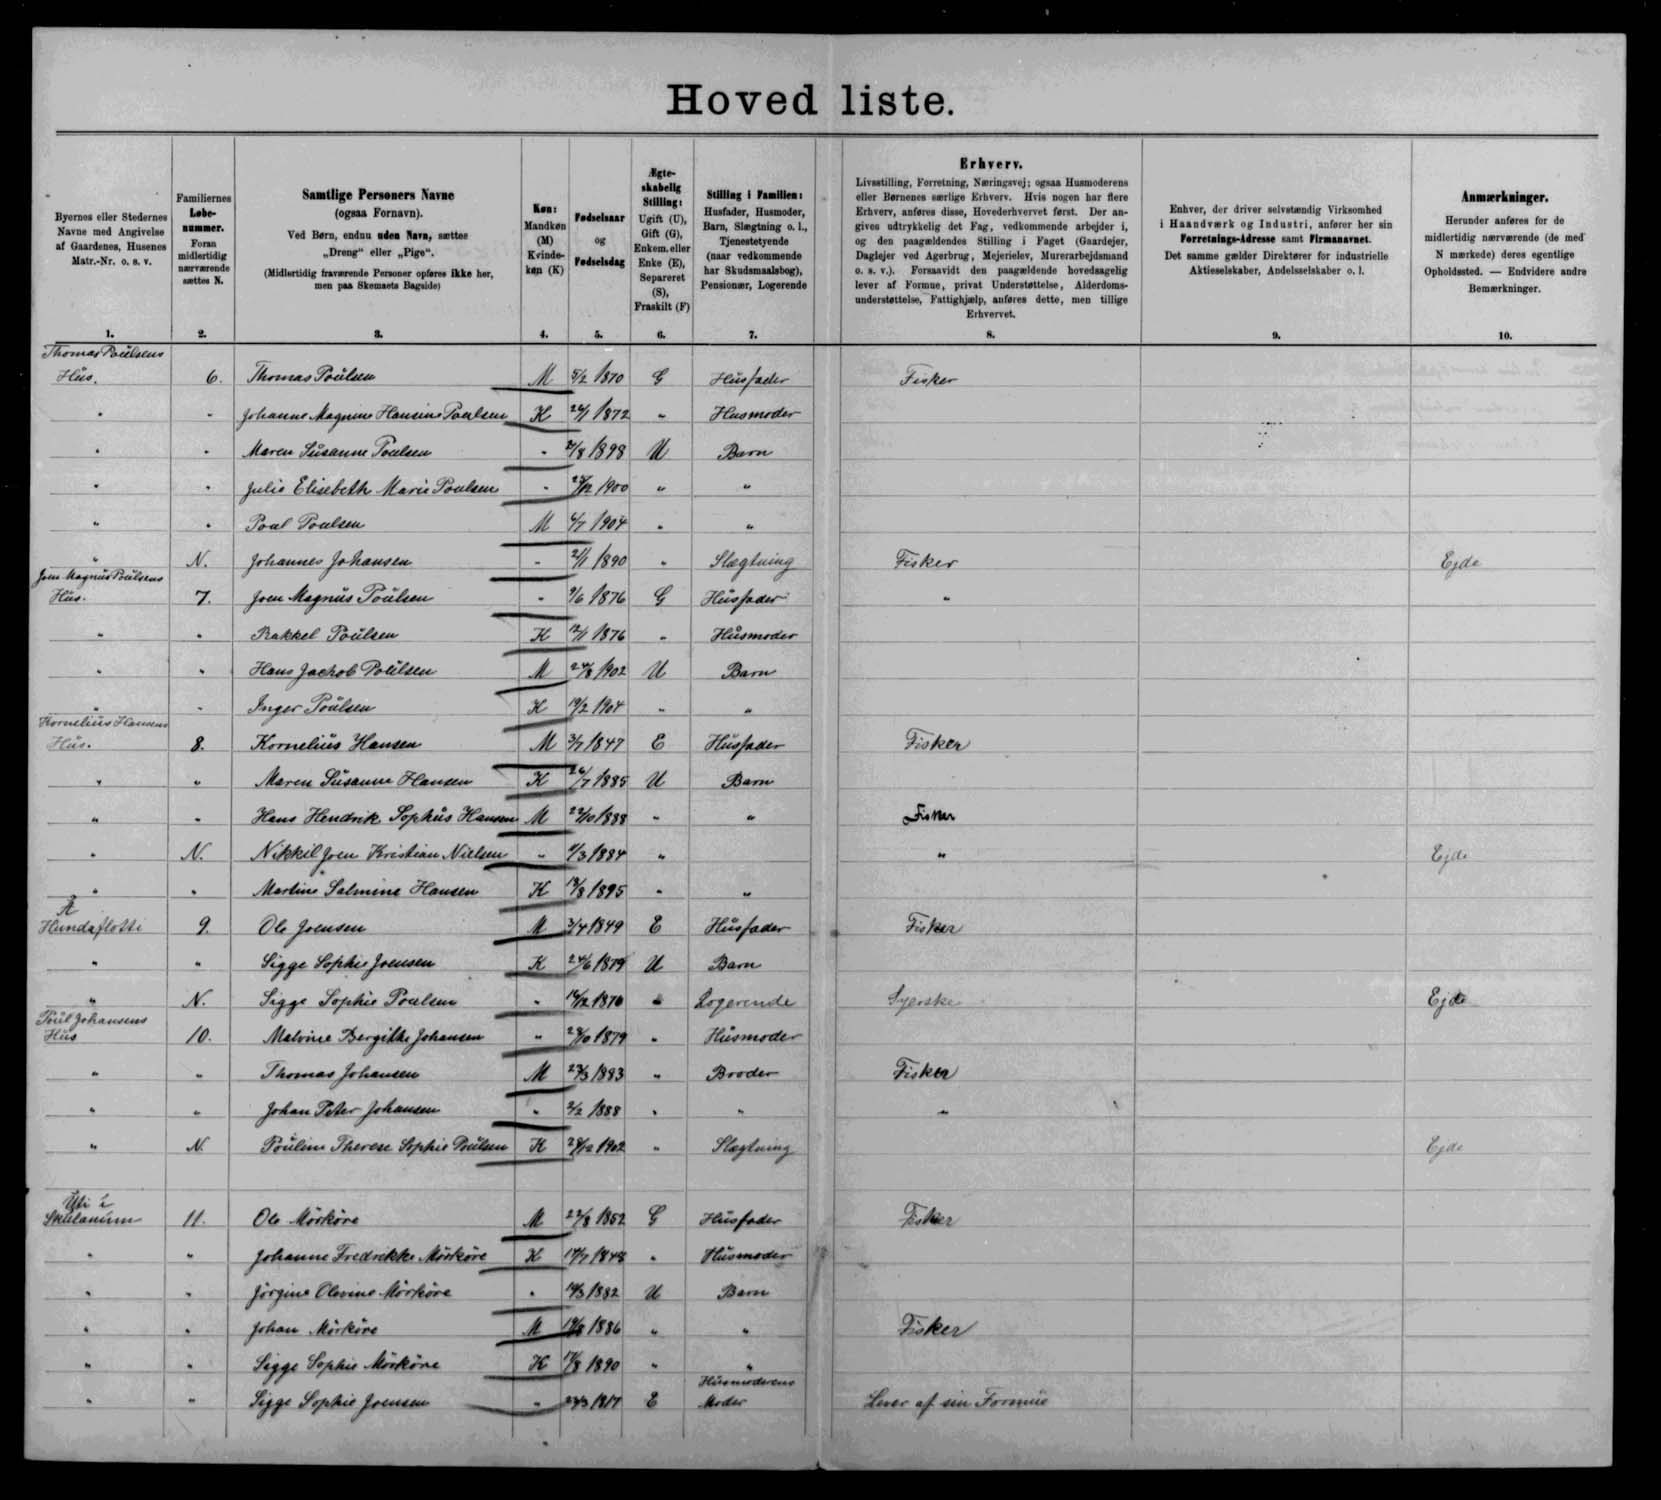 Hoved liste.
Byernes eller Stedernes Navne med Angivelse af Gaardenes, Husenes Matr.-Nr. o. s. v.
Familiernes Løbenummer. Foran midlertidig nærværende sættes N.
Samtlige Personers Navne (ogsaa Fornavn). Ved Børn, endnu uden Navn, sættes „Dreng“ eller „Pige“. (Midlertidig fraværende Personer opføres ikke her, men paa Skemaets Bagside)
Køn: Mandkøn (M) Kvindekøn (K)
Fødselsaar og Fødselsdag
Ægteskabelig Stilling: Ugift (U), Gift (G), Enkem. eller Enke (E), Separeret (S), Fraskilt (F)
Stilling i Familien: Husfader, Husmoder, Barn, Slægtning o. l., Tjenestetyende (naar vedkommende har Skudsmaalsbog), Pensionær, Logerende
Erhverv. Livsstilling, Forretning, Næringsvej; ogsaa Husmoderens eller Børnenes særlige Erhverv. Hvis nogen har flere Erhverv, anføres disse, Hovederhvervet først. Der angives udtrykkelig det Fag, vedkommende arbejder i, og den paagældendes Stilling i Faget (Gaardejer, Daglejer ved Agerbrug, Mejerielev, Murerarbejdsmand o. s. v.). Forsaavidt den paagældende hovedsagelig lever af Formue, privat Understøttelse, Alderdomsunderstøttelse, Fattighjælp, anføres dette, men tillige Erhvervet.
Enhver, der driver selvstændig Virksomhed i Haandværk og Industri, anfører her sin Forretnings-Adresse samt Firmanavnet. Det samme gælder Direktører for industrielle Aktieselskaber, Andelsselskaber o. l.
Anmærkninger. Herunder anføres for de midlertidig nærværende (de med N mærkede) deres egentlige Opholdssted. — Endvidere andre Bemærkninger.
1. 2. 3. 4. 5. 6. 7. 8. 9. 10.
Thomas Poulsens
Hus. 6. Thomas Poulsen M 5/2 1870 G Husfader Fisker
" " Johanne Magnine Hansine Poulsen K 1872 " Husmoder
" " Maren Susanne Poulsen " 1898 U Barn
" " Julie Elisebeth Marie Poulsen " 1900 " "
" " Poul Poulsen M 1904 " "
" N. Johannes Johansen " 1890 " Slægtning Fisker Ejde
Joen Magnus Poulsens
Hus. 7. Joen Magnus Poulsen " 1876 G Husfader "
" " Rakkel Poulsen K 12/1 1876 " Husmoder
" " Hans Jachob Poulsen M 24/8 1902 U Barn
" " Inger Poulsen K 19/2 1904 " "
Kornelius Hansens
Hus. 8. Kornelius Hansen M 3/7 1847 E Husfader Fisker
" " Maren Susanne Hansen K 26/7 1885 U Barn
" " Hans Hendrik Sophus Hansen M 1888 " " Fisker
" N. Nikkil Joen Kristian Nielsen " 1884 " " Ejde
" " Martine Salmine Hansen K 1895 " "
Å
Hundaflotti 9. Ole Joensen M 3/4 1849 E Husfader Fisker
" " Sigge Sophie Joensen K 24/6 1879 U Barn
" N. Sigge Sophie Poulsen " 1870 " Logerende Syerske Ejde
Poul Johansens
Hus 10. Malvine Bergithe Johansen " 1879 " Husmoder
" " Thomas Johansen M 1883 " Broder Fisker
" " Johan Peter Johansen " 2/2 1888 " " "
" N. Pouline Therese Sophie Poulsen K 1902 " Slægtning Ejde
Uti i
11. Ole Mörköre M 22/8 1852 G Husfader Fisker
" " Johanne Fredrekke Mörköre K 1848 " Husmoder
" " Jörgine Olevine Mörköre " 1882 U Barn
" " Johan Mörköre M 1886 " " Fisker
" " Sigge Sophie Mörköre K 17/8 1890 " "
Husmoderens
" " Sigge Sophie Joensen " 1817 E Moder Lever af sin Formue